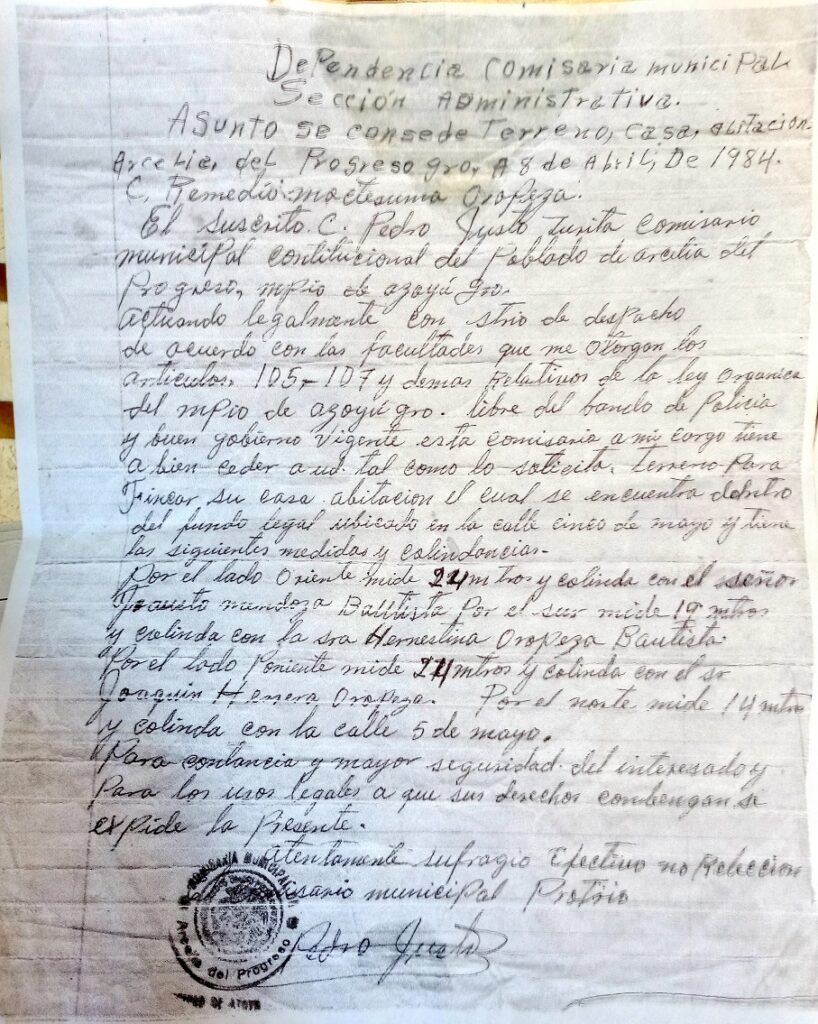 DePendencia comisaria municipal
Sección Administrativa.
Asunto se consede Terreno, casa, abitacion.
Arcelia, del Progreso gro, A 8 de Abril, De 1984.
C. Remedio moctesuma Oropeza.
El suscrito C. Pedro Justo Zurita Comisario
municipal contitucional del Poblado de arcelia del
Progreso, mpio de azoyú gro.
actuando legalmente con strio de despacho
de acuerdo con las facultades que me otorgan los
articulos, 105-107 y demas Relativos de la ley organica
del mpio de azoyú gro. libre del bando de Policia
y buen gobierno vigente esta comisaria a mi cargo tiene
a bien ceder a ud. tal como lo solicita. Terreno Para
Fincar su casa abitacion el cual se encuentra dentro
del fundo legal ubicado en la calle cinco de mayo y tiene
las siguientes medidas y colindancias-
Por el lado Oriente mide 24 mtros y colinda con el señor
Fausto mendoza Bautista Por el sur mide 19 mtros
y colinda con la sra Hernestina Oropeza Bautista.
Por el lado Poniente mide 24 mtros y colinda con el sr
Joaquin Herrera Oropeza. Por el norte mide 14 mtro
y colinda con la calle 5 de mayo.
Para contancia y mayor seguridad del interesado y
Para los usos legales a que sus derechos conbengan se
expide la Presente.
atentamente sufragio Efectivo no Relección
municipal Protrio
COMISARIA MUNICIPAL
Arcelia del Progreso
Pedro Justo Z